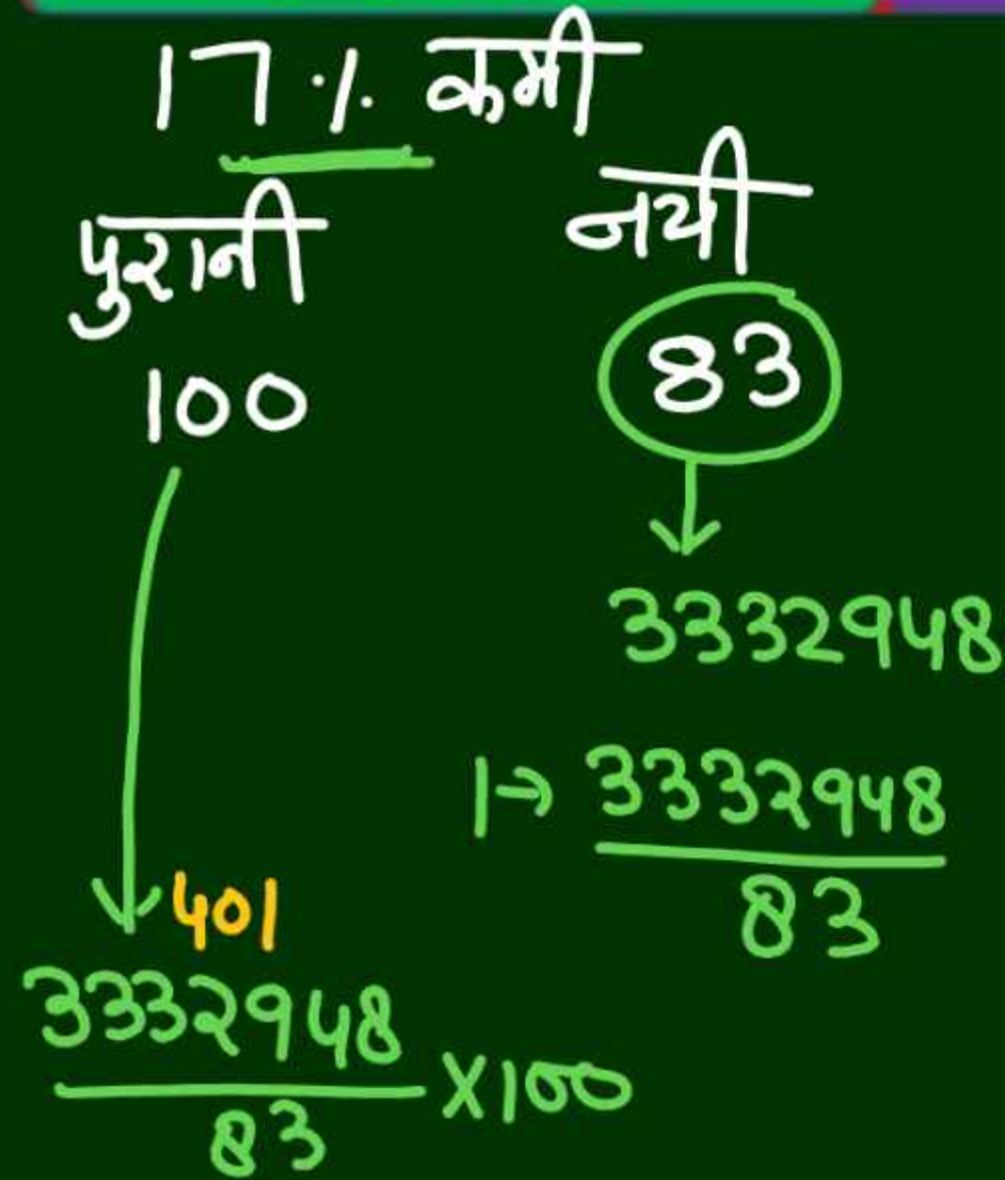 17% कमी
पुरानी नयी
100 83
3332948
1→ 3332948
83
401
3332948
83
×100